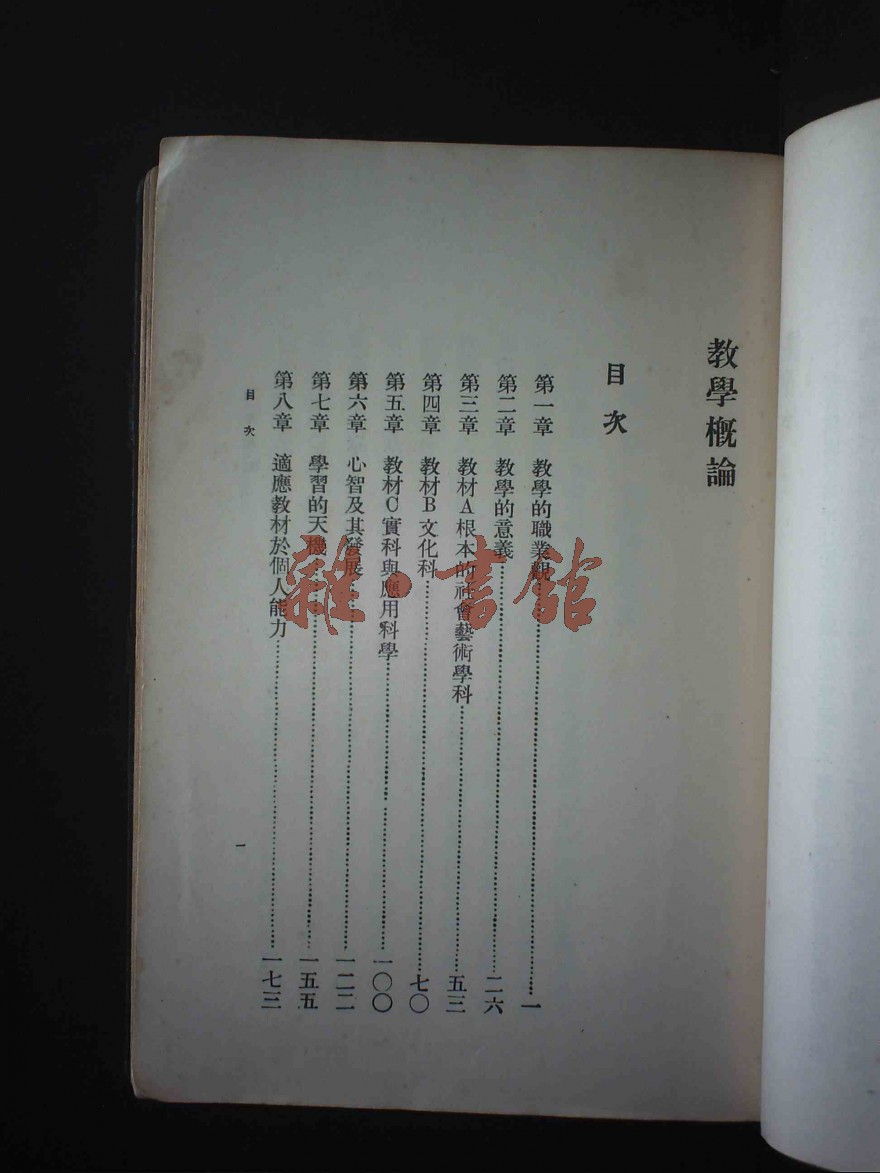 教學概論
目次
第一章 教學的職業觀……一
第二章 教學的意義……二六
第三章 教材A根本的社會藝術學科……五三
第四章 教材B文化科……七〇
第五章 教材C實科與應用科學……一〇〇
第六章 心智及其發展……一二二
第七章 學習的天機……一五五
第八章 適應教材於個人能力……一七三
目次
一
雜·書館